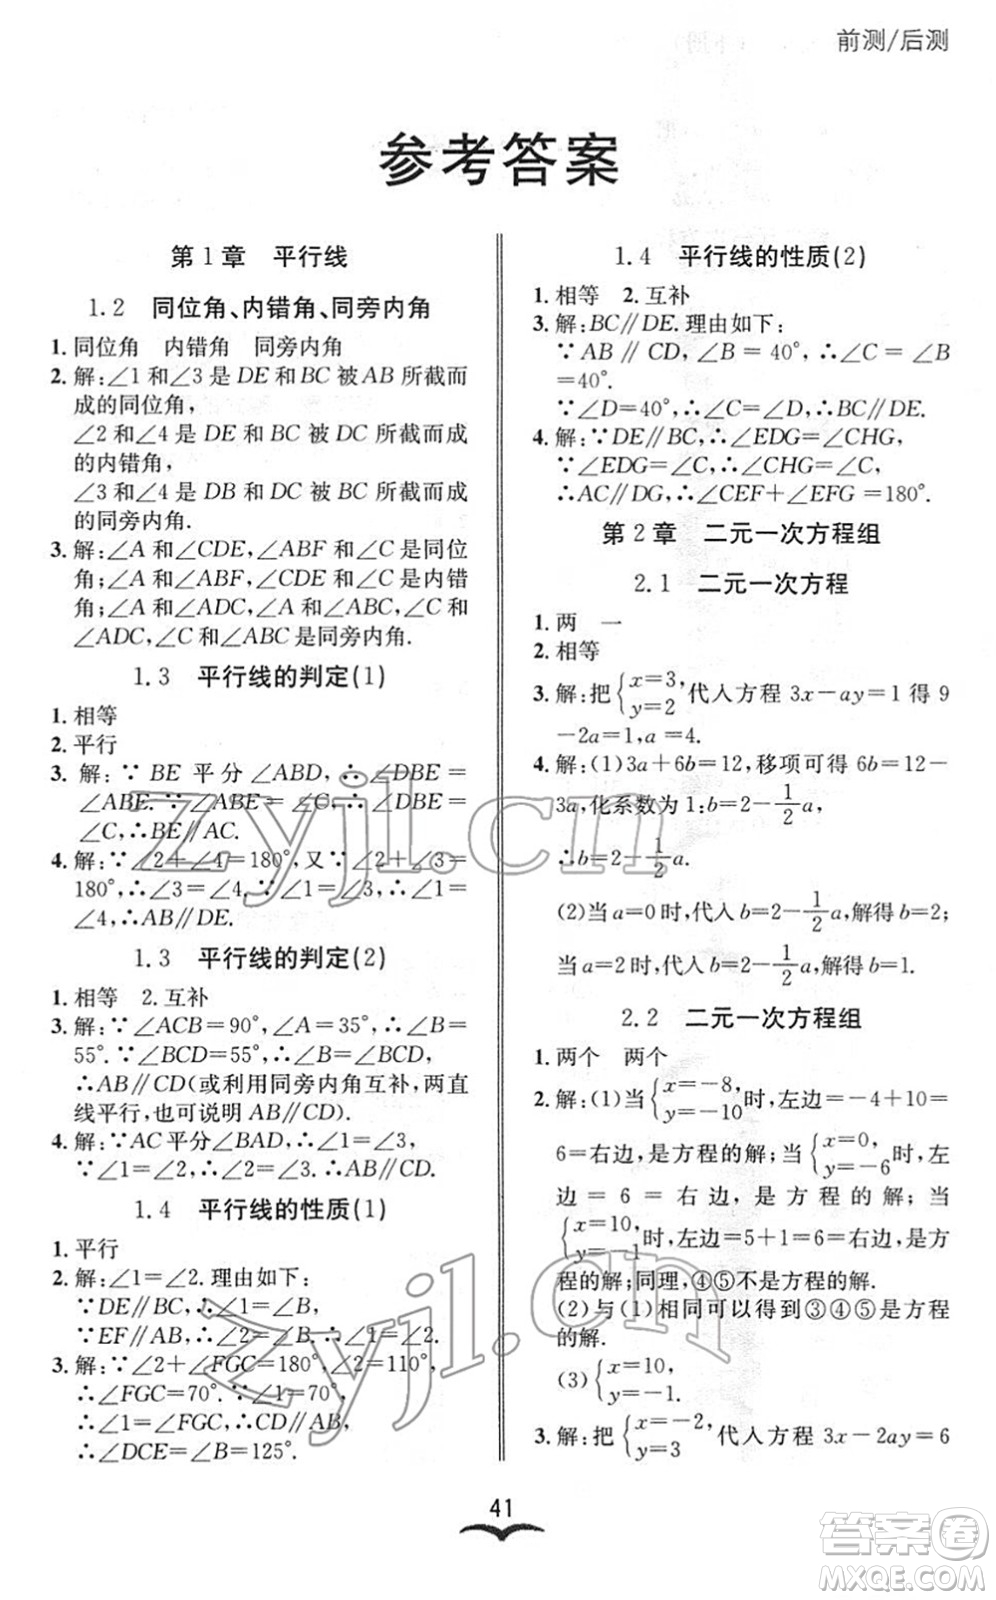 前测/后测
参考答案
第1章 平行线
1.2 同位角、内错角、同旁内角
1. 同位角 内错角 同旁内角
2. 解:∠1和∠3是DE和BC被AB所截而
成的同位角,
∠2和∠4是DE和BC被DC所截而成
的内错角,
∠3和∠4是DB和DC被BC所截而成
的同旁内角.
3. 解:∠A和∠CDE,∠ABF和∠C是同位
角;∠A和∠ABF,∠CDE和∠C是内错
角;∠A和∠ADC,∠A和∠ABC,∠C和
∠ADC,∠C和∠ABC是同旁内角.
1.3 平行线的判定(1)
1. 相等
2. 平行
3. 解:∵BE平分∠ABD,∴∠DBE=
∠ABE.∵∠ABE=∠C,∴∠DBE=
∠C,∴BE∥AC.
4. 解:∵∠2+∠4=180°,又∵∠2+∠3=
180°,∴∠3=∠4.∵∠1=∠3,∴∠1=
∠4,∴AB∥DE.
1.3 平行线的判定(2)
1. 相等 2. 互补
3. 解:∵∠ACB=90°,∠A=35°,∴∠B=
55°.∵∠BCD=55°,∴∠B=∠BCD,
∴AB∥CD(或利用同旁内角互补,两直
线平行,也可说明AB∥CD).
4. 解:∵AC平分∠BAD,∴∠1=∠3,
∵∠1=∠2,∴∠2=∠3,∴AB∥CD.
1.4 平行线的性质(1)
1. 平行
2. 解:∠1=∠2.理由如下:
∵DE∥BC,∴∠1=∠B,
∵EF∥AB,∴∠2=∠B,∴∠1=∠2.
3. 解:∵∠2+∠FGC=180°,∠2=110°,
∴∠FGC=70°.∵∠1=70°,
∴∠1=∠FGC,∴CD∥AB,
∴∠DCE=∠B=125°.
1.4 平行线的性质(2)
1. 相等 2. 互补
3. 解:BC∥DE.理由如下:
∵AB∥CD,∠B=40°,∴∠C=∠B
=40°.
∵∠D=40°,∴∠C=∠D,∴BC∥DE.
4. 解:∵DE∥BC,∴∠EDG=∠CHG,
∵∠EDG=∠C,∴∠CHG=∠C,
∴AC∥DG,∴∠CEF+∠EFG=180°.
第2章 二元一次方程组
2.1 二元一次方程
1. 两 一
2. 相等
3. 解:把{x=3, y=2代入方程3x-ay=1得9
-2a=1,a=4.
4. 解:(1)3a+6b=12,移项可得6b=12-
3a,化系数为1:b=2-1/2a,
∴b=2-1/2a.
(2)当a=0时,代入b=2-1/2a,解得b=2;
当a=2时,代入b=2-1/2a,解得b=1.
2.2 二元一次方程组
1. 两个 两个
2. 解:(1)当{x=-8, y=-10时,左边=-4+10=
6=右边,是方程的解;当{x=0, y=-6时,左
边=6=右边,是方程的解;当
{x=10, y=-1时,左边=5+1=6=右边,是方
程的解;同理,④⑤不是方程的解.
(2)与(1)相同可以得到③④⑤是方程
的解.
(3){x=10, y=-1.
3. 解:把{x=-2, y=3代入方程3x-2ay=6
41
zyjl.cn
zyjl.cn
答案圈
MXQE.COM